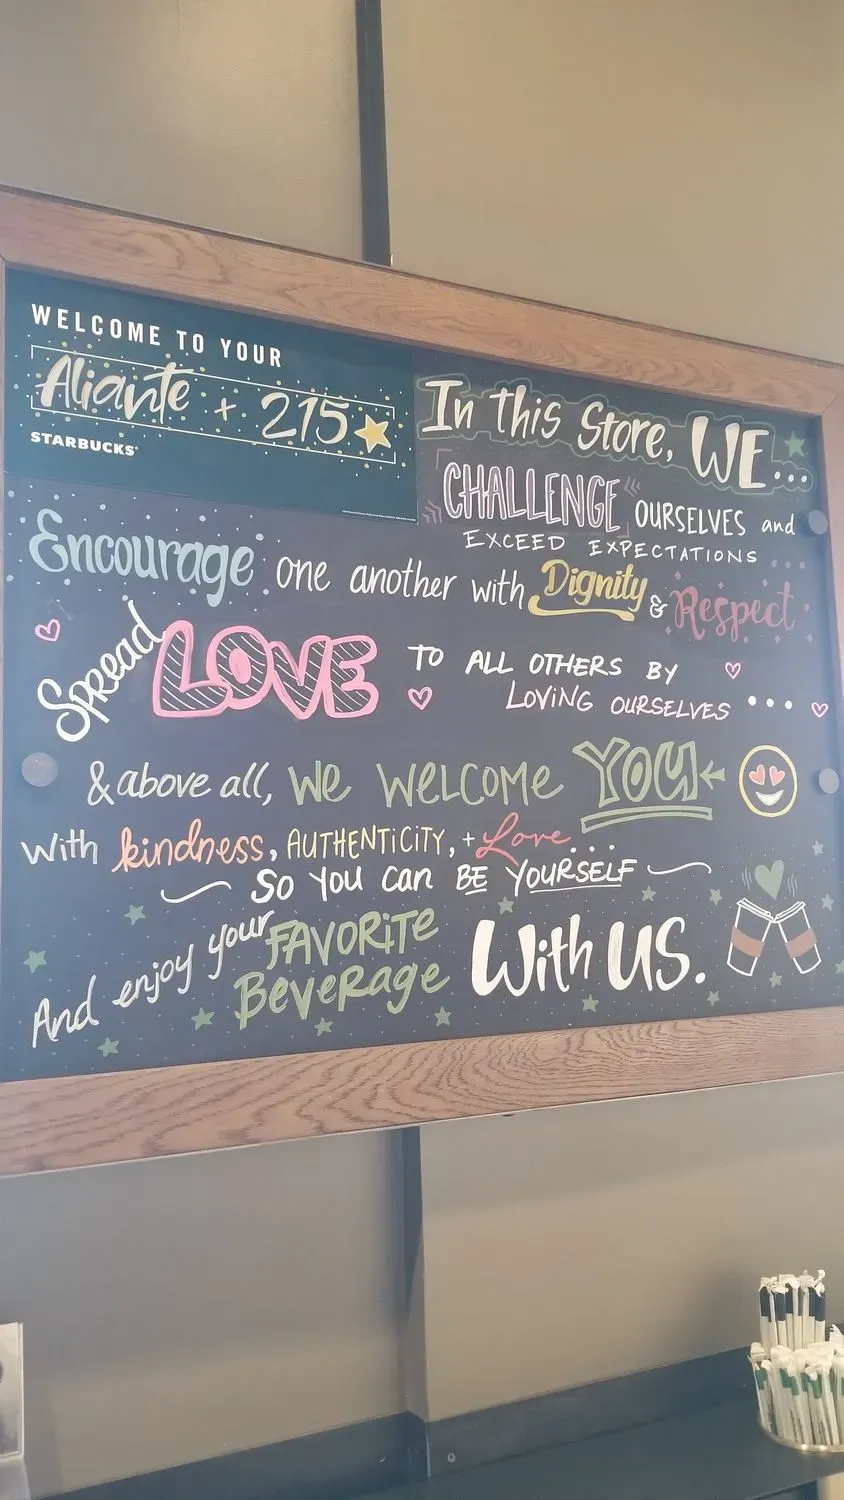 WELCOME TO YOUR
Aliante + 215
STARBUCKS
In this Store, WE...
CHALLENGE OURSELVES and
EXCEED EXPECTATIONS
Encourage one another with Dignity & Respect
Spread LOVE TO ALL OTHERS BY
LOVING OURSELVES ...
& above all, We WELCOME YOU
With kindness, AUTHENTICITY, + Love...
So You Can BE YOURSELF
And enjoy your FAVORITE
BEVERAGE With US.